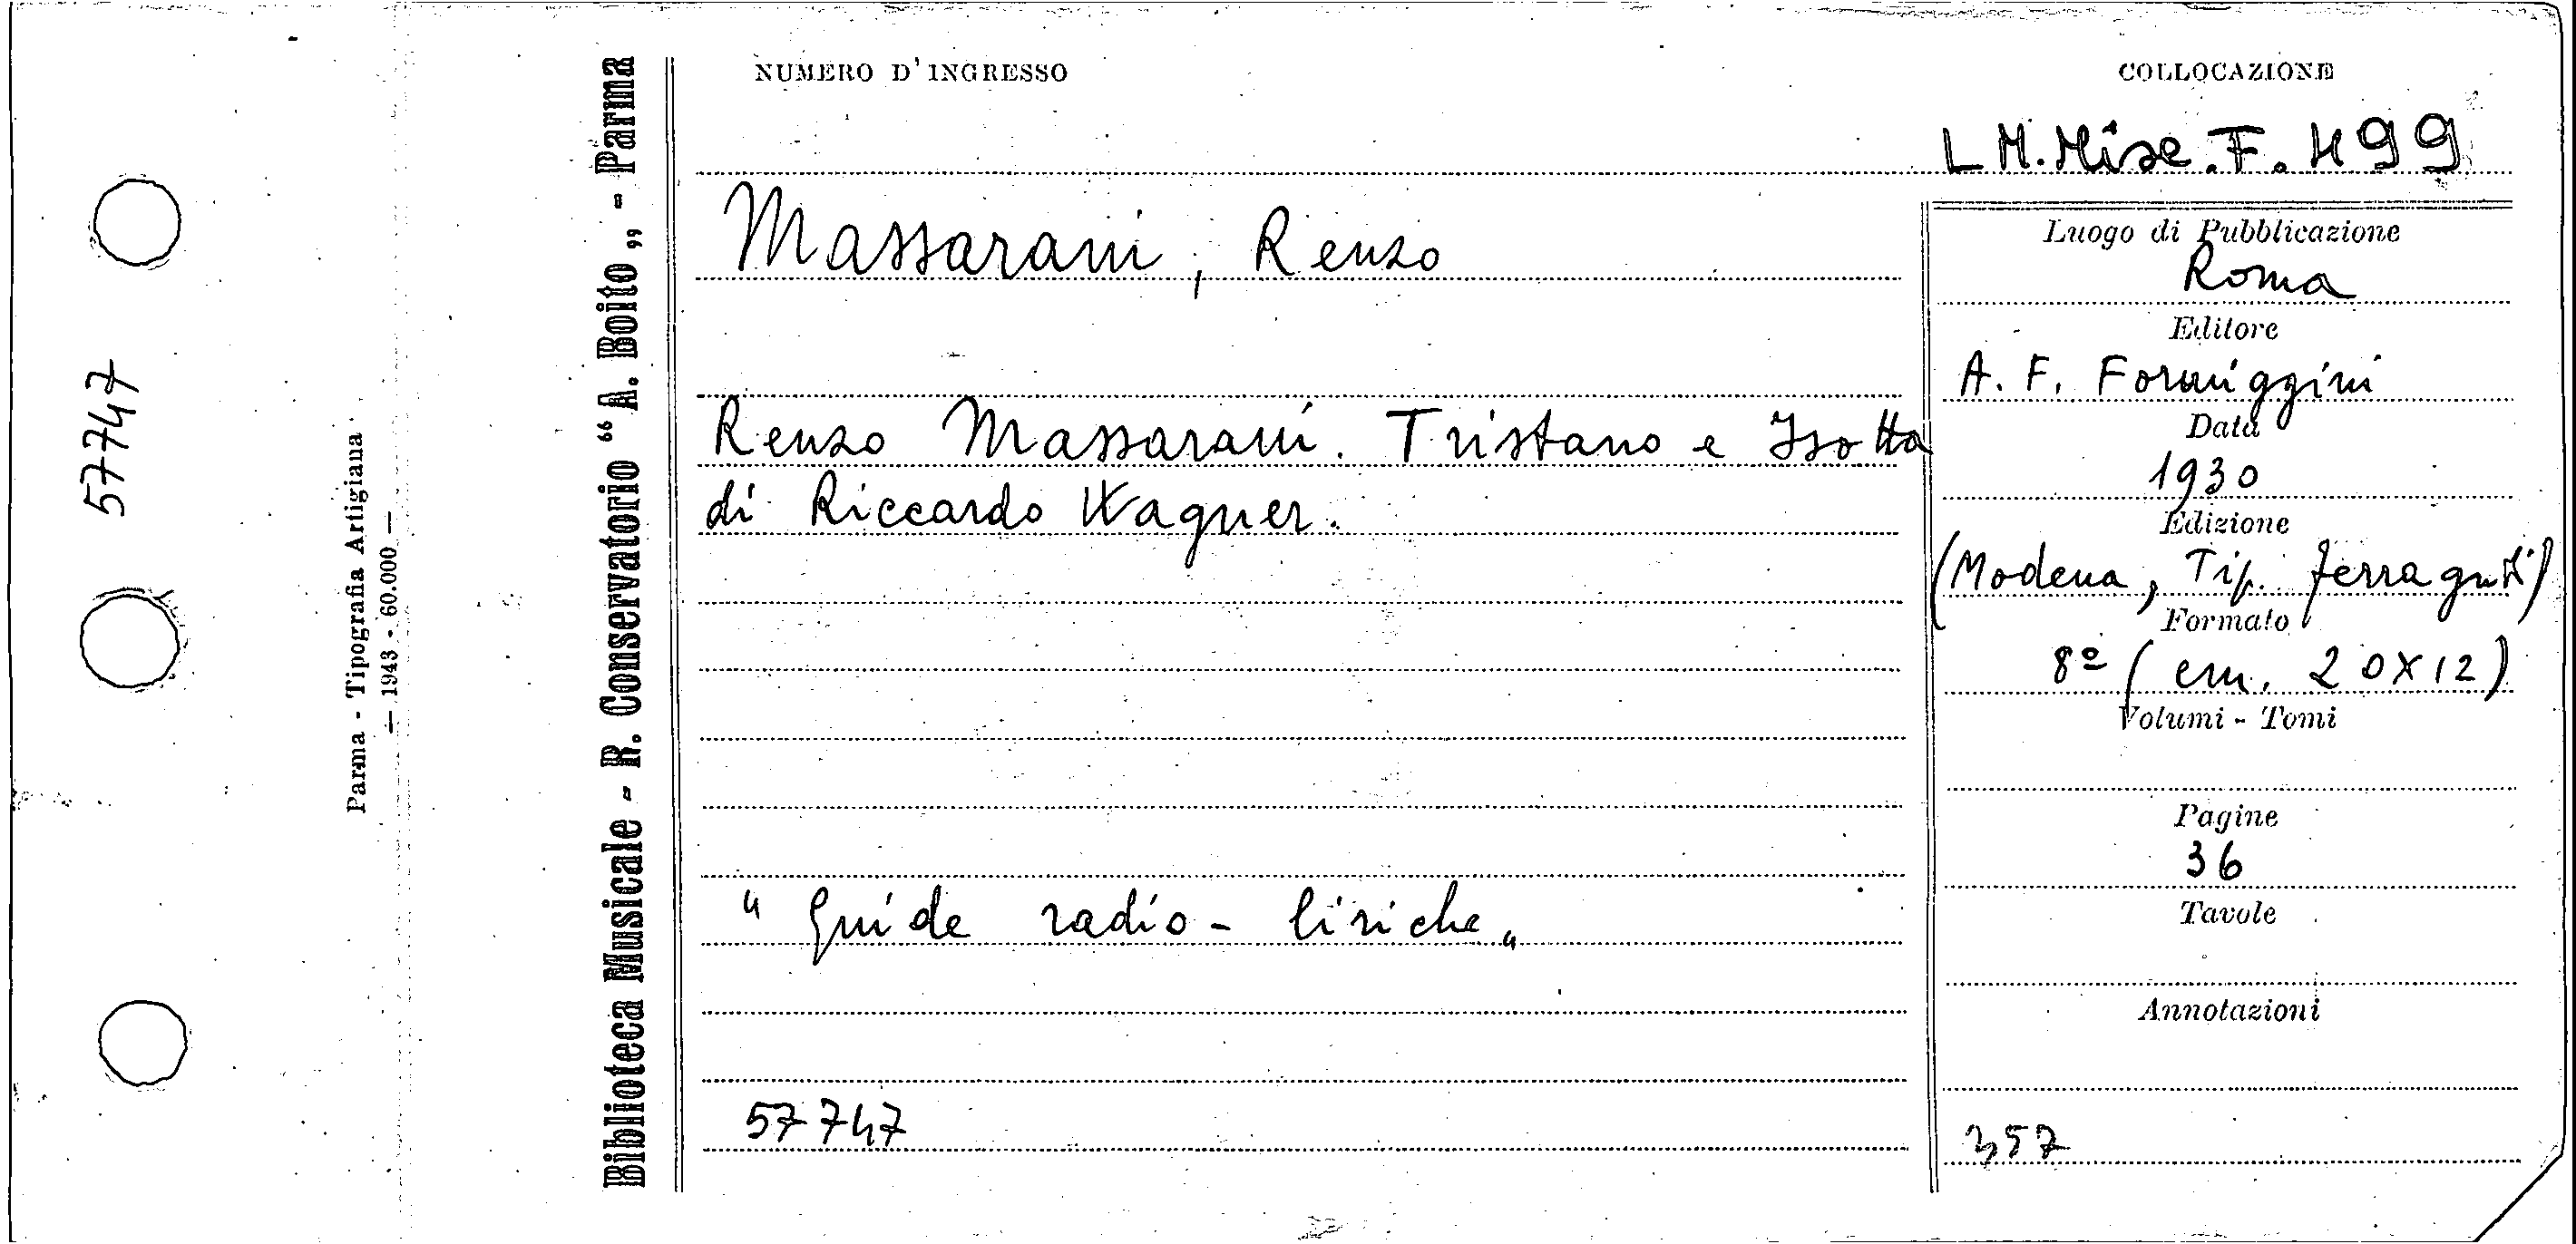 57747
Parma - Tipografia Artigiana
— 1943 - 60.000 —
Biblioteca Musicale - R. Conservatorio “A. Boito„ - Parma
NUMERO D'INGRESSO
COLLOCAZIONE
L M. Misc. F. 499
Massarani, Renzo
Renzo Massarani. Tristano e Isotta
di Riccardo Wagner.
"Guide radio-liriche„
57747
Luogo di Pubblicazione
Roma
Editore
A. F. Formiggini
Data
1930
Edizione
(Modena, Tip. Ferraguti)
Formato
8º (cm. 20X12)
Volumi - Tomi
Pagine
36
Tavole
Annotazioni
357